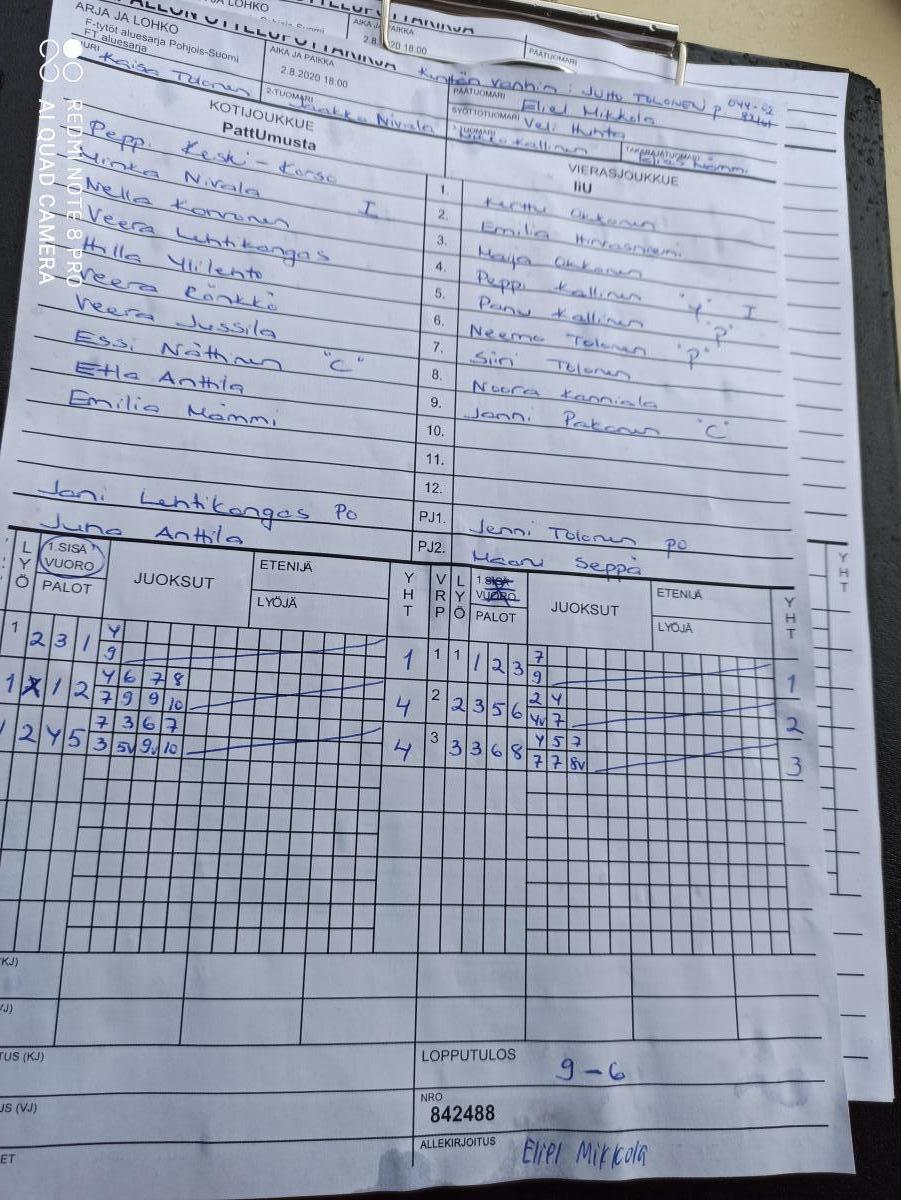 JA LOHKO
AIKA JA PAIKKA
2.8.2020 18:00
PÄÄTUOMARI
ARJA JA LOHKO
F-tytöt aluesarja Pohjois-Suomi
FT aluesarja
AIKA JA PAIKKA
2.8.2020 18:00
Kentän vanhin: JUHO TOLONEN p
PÄÄTUOMARI
Eliel Mikkola
Kaisa Tolonen
2-TUOMARI
Jaakko Nivala
SYÖTTÖTUOMARI
Veli Huhta
TAKARAJATUOMARI
KOTIJOUKKUE
PattUmusta
VIERASJOUKKUE
IiU
Peppi Keski-Korso
1.
Kerttu Okkonen
Minka Nivala I
2.
Emilia Hirvasniemi
Nella Korvonen
3.
Maija Okkonen
Veera Lehtikangas
4.
Peppi Kallinen "Y" I
Hilla Ylilehto
5.
Panu Kallinen "P"
Veera Rönkkö
6.
Neema Tolonen "P"
Veera Jussila
7.
Siiri Tolonen
Essi Näthinen "C"
8.
Noora Kanniala
Etla Anthila
9.
Janni Pakanen "C"
Emilia Mämmi
10.
11.
12.
Jani Lehtikangas Po
PJ1.
Jenni Tolonen po
Juha Anttila
PJ2.
Maani Seppä
LYÖ 1.SISÄ VUORO PALOT JUOKSUT ETENIJÄ LYÖJÄ YHT VRP LYÖ 1.SISÄ VUORO PALOT JUOKSUT ETENIJÄ LYÖJÄ YHT
1 2 3 1 4 1 1 1 1 2 3 7 1
9 9
1 X 1 2 4 6 7 8 4 2 2 3 5 6 2 4 2
7 9 9 10 4v 7
1 2 4 5 7 3 6 7 4 3 3 3 6 8 4 5 7 3
3 5v 9v 10 7 7 8v
KJ)
VJ)
TUS (KJ)
LOPPUTULOS
9-6
US (VJ)
NRO
842488
ET
ALLEKIRJOITUS
Eliel Mikkola
YHT
REDMI NOTE 8 PRO
AI QUAD CAMERA